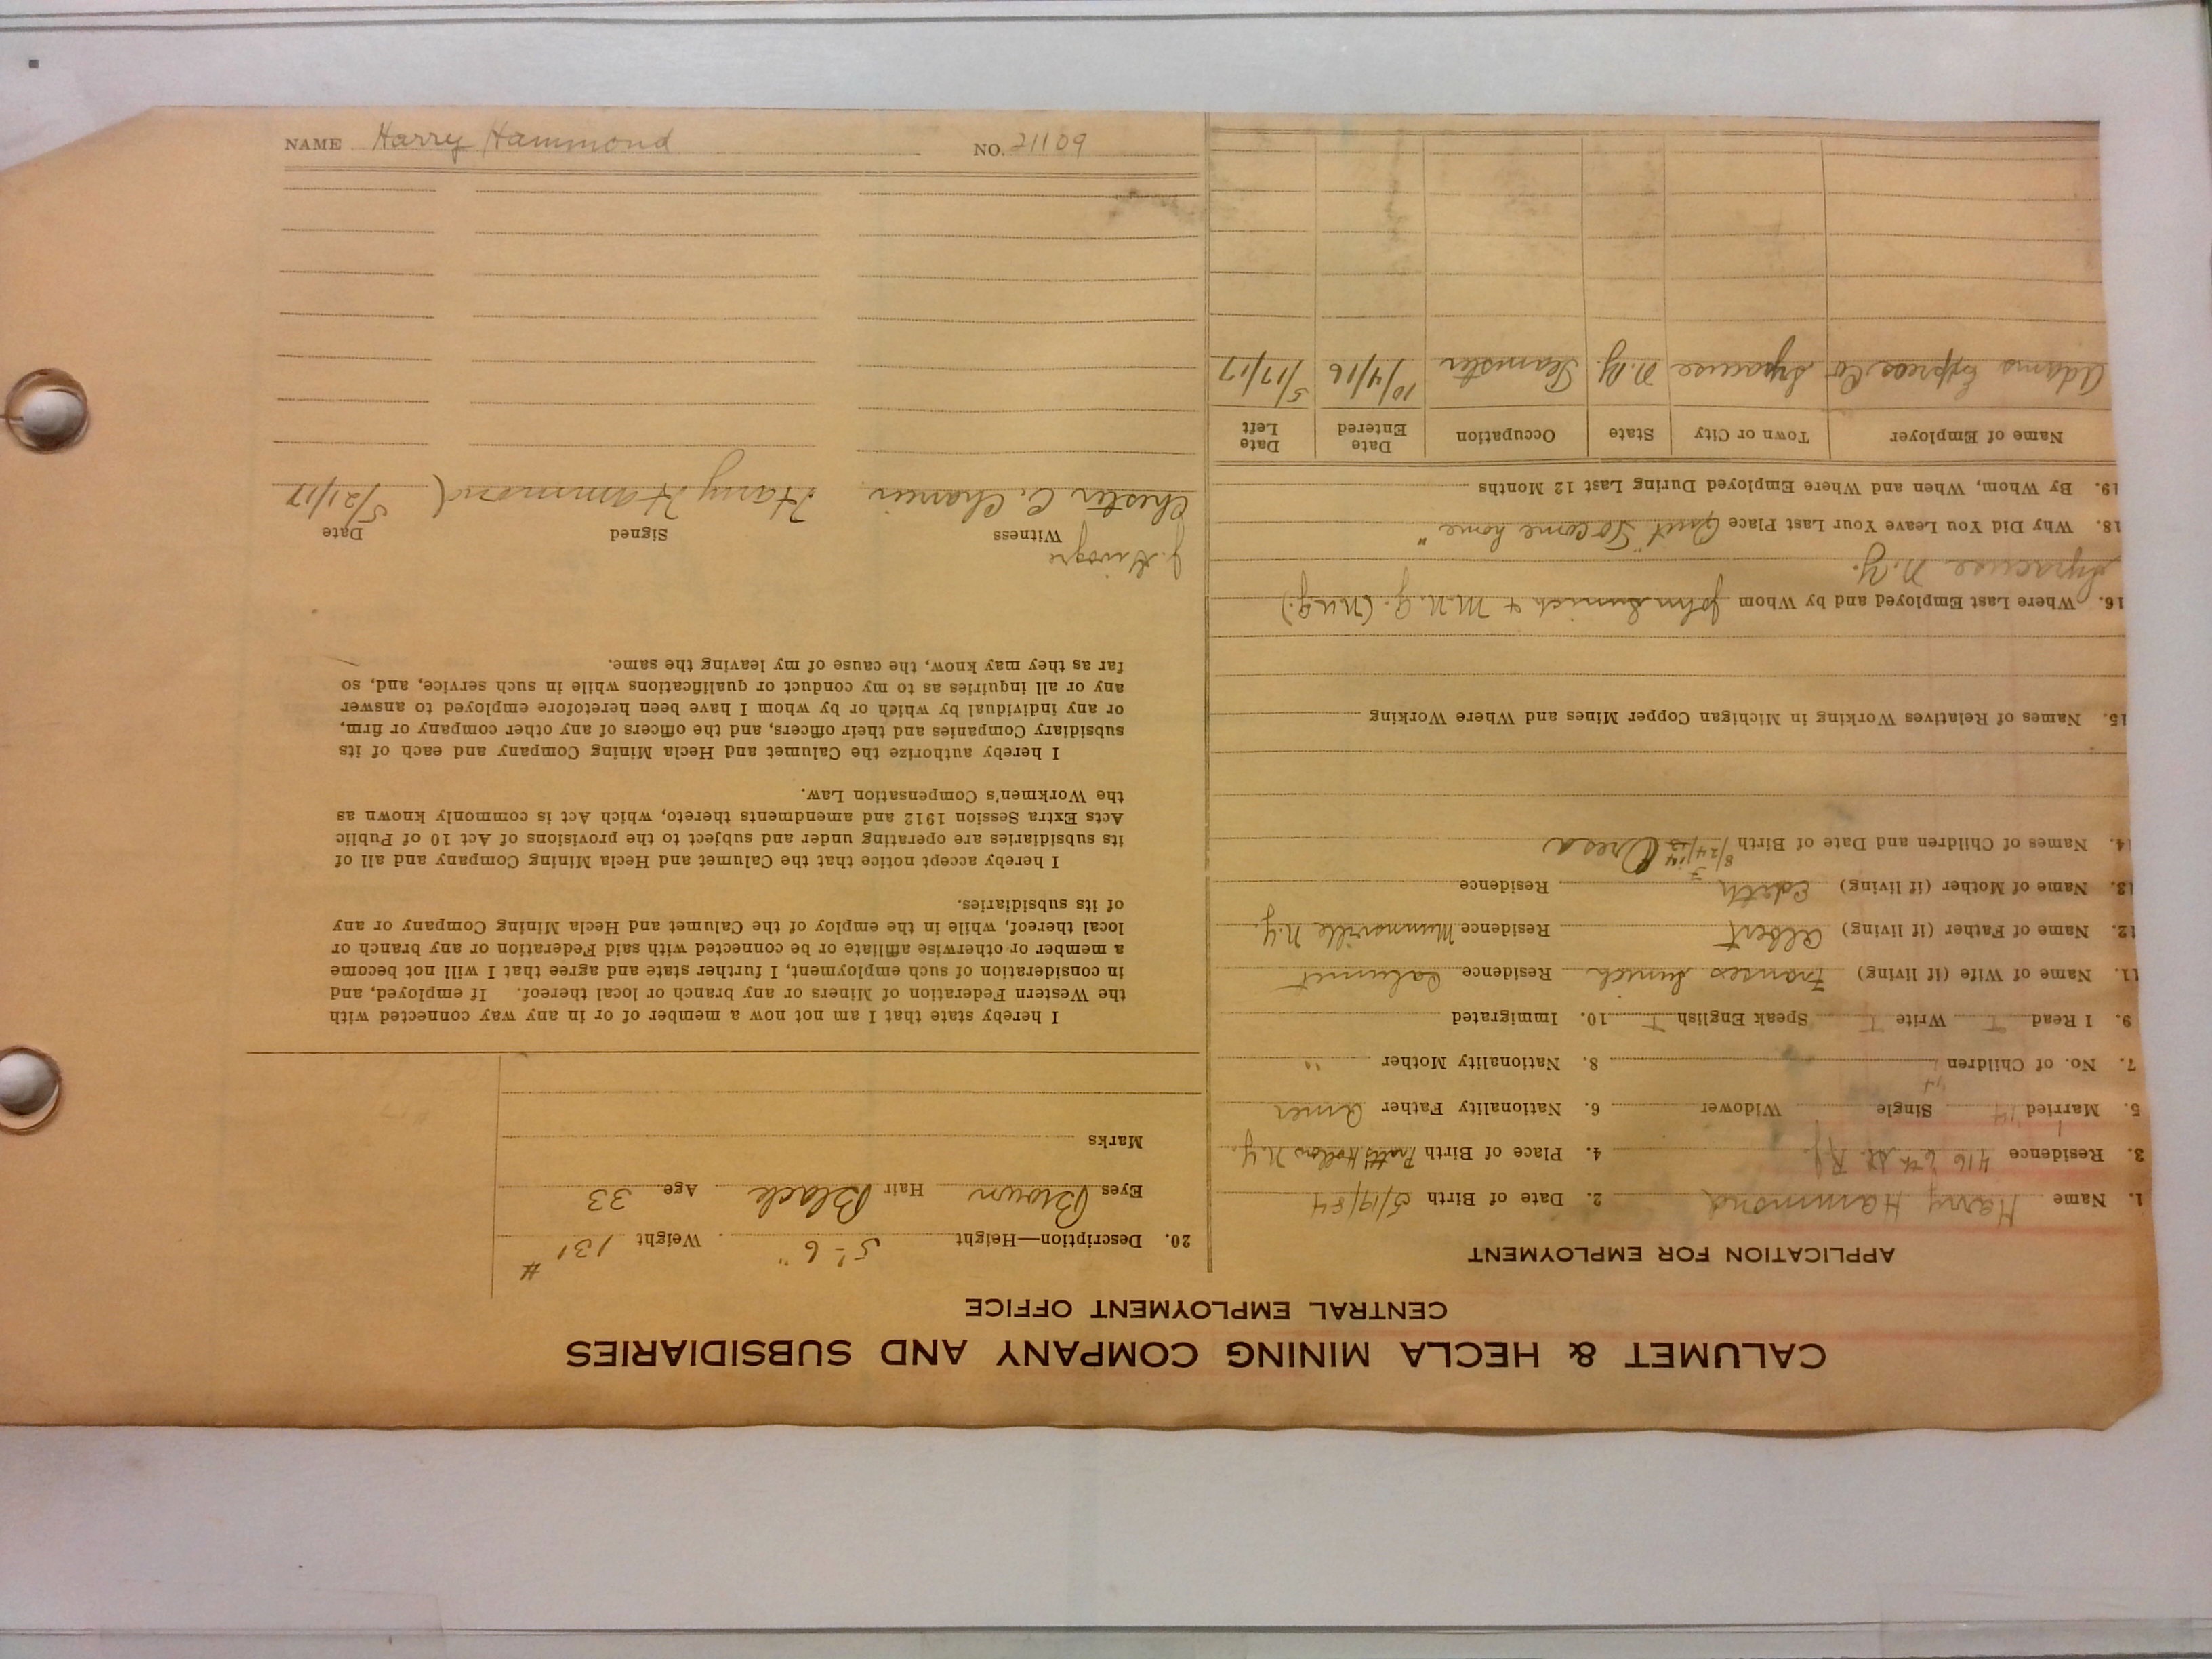 CALUMET & HECLA MINING COMPANY AND SUBSIDIARIES
CENTRAL EMPLOYMENT OFFICE
APPLICATION FOR EMPLOYMENT
1. Name Harry Hammond 2. Date of Birth 5/19/84
3. Residence 416 6th St. R.J. 4. Place of Birth Pratts Hollow N.Y.
5. Married Single Widower 6. Nationality Father Amer
7. No. of Children 8. Nationality Mother "
9. I Read Write Speak English 10. Immigrated
11. Name of Wife (if living) Franses Sunich Residence Calumet
12. Name of Father (if living) Albert Residence Munnsville N.Y.
13. Name of Mother (if living) Edith Residence
14. Names of Children and Date of Birth 8/24/13 Oresa
15. Names of Relatives Working in Michigan Copper Mines and Where Working
16. Where Last Employed and by Whom John Sunich + M.N.G. (Mug.)
Syracuse N.Y.
18. Why Did You Leave Your Last Place Quit "To come home"
19. By Whom, When and Where Employed During Last 12 Months
Name of Employer Town or City State Occupation Date Entered Date Left
Adams Express Co Syracuse N.Y. Teamster 10/4/16 5/17/17
20. Description—Height 5'-6" Weight 131 #
Eyes Brown Hair Black Age 33
Marks
I hereby state that I am not now a member of or in any way connected with
the Western Federation of Miners or any branch or local thereof. If employed, and
in consideration of such employment, I further state and agree that I will not become
a member or otherwise affiliate or be connected with said Federation or any branch or
local thereof, while in the employ of the Calumet and Hecla Mining Company or any
of its subsidiaries.
I hereby accept notice that the Calumet and Hecla Mining Company and all of
its subsidiaries are operating under and subject to the provisions of Act 10 of Public
Acts Extra Session 1912 and amendments thereto, which Act is commonly known as
the Workmen's Compensation Law.
I hereby authorize the Calumet and Hecla Mining Company and each of its
subsidiary Companies and their officers, and the officers of any other company or firm,
or any individual by which or by whom I have been heretofore employed to answer
any or all inquiries as to my conduct or qualifications while in such service, and, so
far as they may know, the cause of my leaving the same.
Witness Signed Date
Chester C. Harry Hammond 5/21/17
NAME Harry Hammond NO. 21109